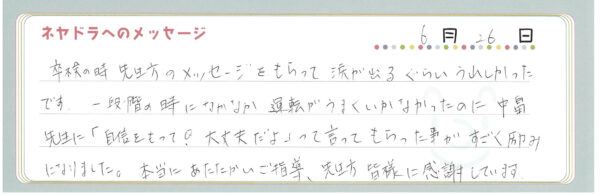 ネヤドラへのメッセージ
6月26日
卒検の時 先生方のメッセージをもらって 涙が出るぐらい うれしかった
です。一段階の時になかなか 運転がうまくいかなかったのに 中畠
先生に「自信をもって♡ 大丈夫だよ」って言ってもらった事が すごく励み
になりました。本当にあたたかいご指導、先生方 皆様に感謝しています。